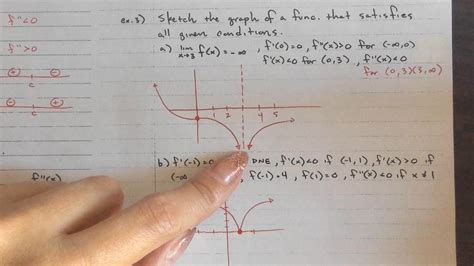 f"<0
f">0
c
c
f"(x)
ex.3) Sketch the graph of a func. that satisfies
all given conditions.
a) lim x→3 f(x) = -∞ , f'(0)=0, f"(x)>0 for (-∞,0)
f'(x)<0 for (0,3) , f"(x)<0
for (0,3)(3,∞)
1 2 4 5
b) f'(-1)=0 DNE, f'(x)<0 if (-1,1), f'(x)>0 if
(-∞ , f(-1)=4, f(1)=0, f"(x)<0 if x≠1